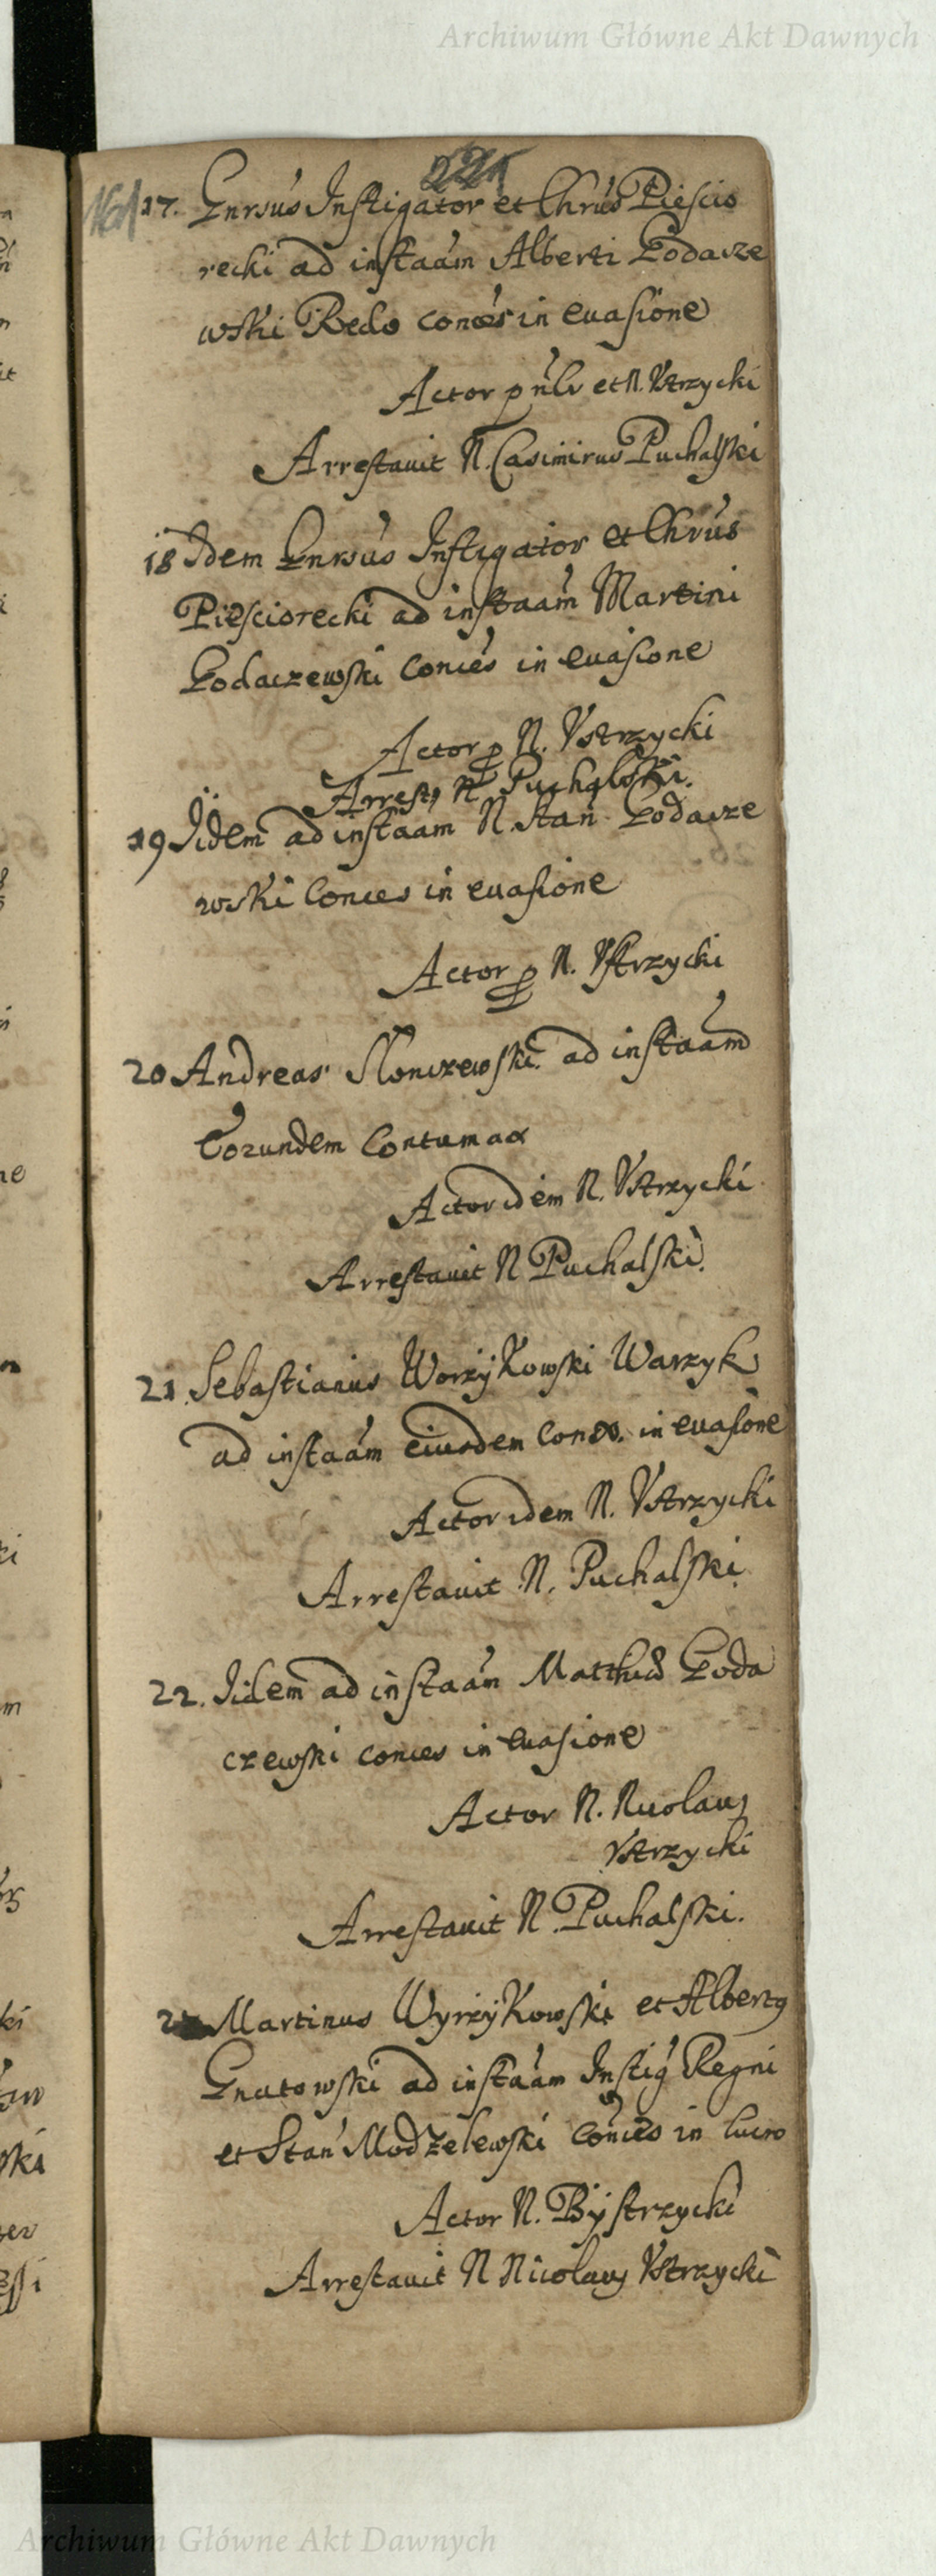 Archiwum Główne Akt Dawnych
221
161
17. Gnrsus Instigator et Chrus Piescio
recki ad instaam Alberti Godacze
wski Redo conces in euasione
Actor p et N. Vstrzycki
Arrestauit N. Casimirus Puchalski
18 Idem Gnrsus Instigator et Chrus
Piesciorecki ad instaam Martini
Godaczewski Conces in euasione
Actor p N. Vstrzycki
Arrest N Puchalski.
19 Iidem ad instaam N. Stan Godacze
wski Conces in euasione
Actor p N. Vstrzycki
20 Andreas Slonczewski ad instaam
Eorundem Contumax
Actor idem N. Vstrzycki
Arrestauit N Puchalski.
21. Sebastianus Worzÿkowski Warzyk
ad instaam eiusdem Conces. in euasione
Actor idem N. Vstrzycki
Arrestauit N. Puchalski
22. Iidem ad instaam Matthiæ Goda
czewski conces in euasione
Actor N. Nicolaus
Vstrzycki
Arrestauit N. Puchalski.
Martinus Wyrzÿkowski et Albertus
Gnatowski ad instaam Instig Regni
et Stan Modzelewski Conces in lucro
Actor N. Bÿstrzycki
Arrestauit N Nicolaus Vstrzycki
Archiwum Główne Akt Dawnych